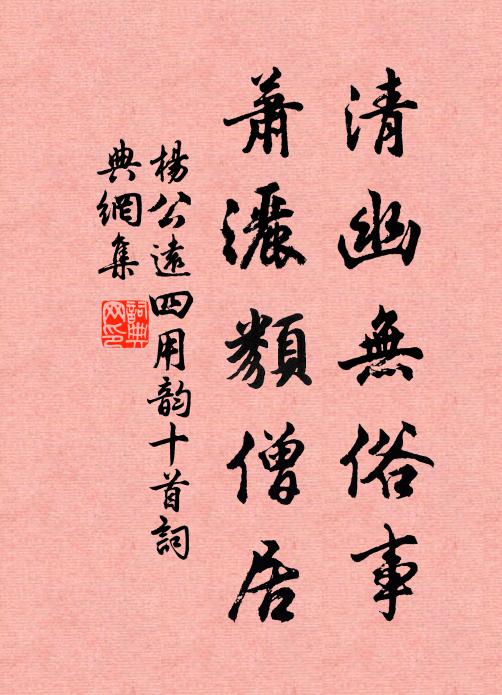 清幽無俗事
蕭灑類僧居
楊公遠四用韵十首詞
典網集
詞典
网印